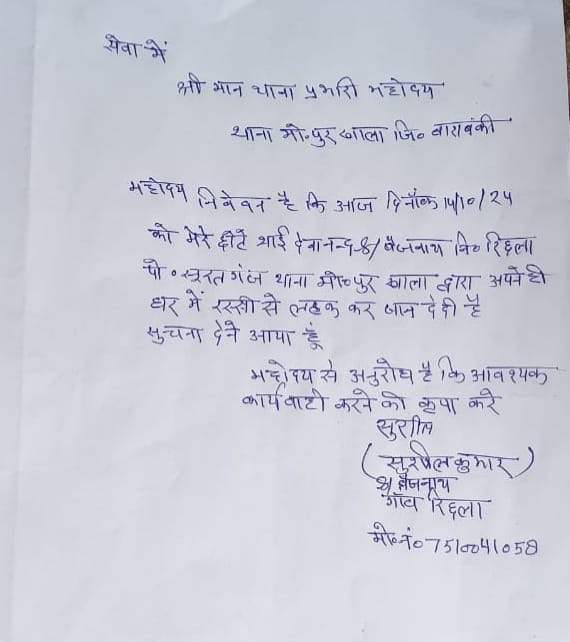 सेवा में
श्री मान थाना प्रभारी महोदय
थाना मो०पुर खाला जि० बाराबंकी
महोदय निवेदन है कि आज दिनाँक 14/10/24
को मेरे छोटे भाई देवानन्द S/ बैजनाथ नि० रिछला
पो० सूरतगंज थाना मो०पुर खाला द्वारा अपने ही
घर में रस्सी से लटक कर जान दे दी है
सुचना देने आया हूं
महोदय से अनुरोध है कि आवश्यक
कार्यवाही करने की कृपा करे
सुशील
(सुशील कुमार)
बैजनाथ
गाँव रिछला
मो०नं० 7510041058